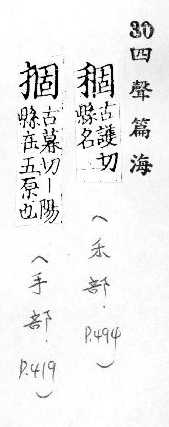 30 四聲篇海
稒 古護切
縣名
(禾部. P.494)
古暮切丨陽
縣在五原也
(手部. P.419)